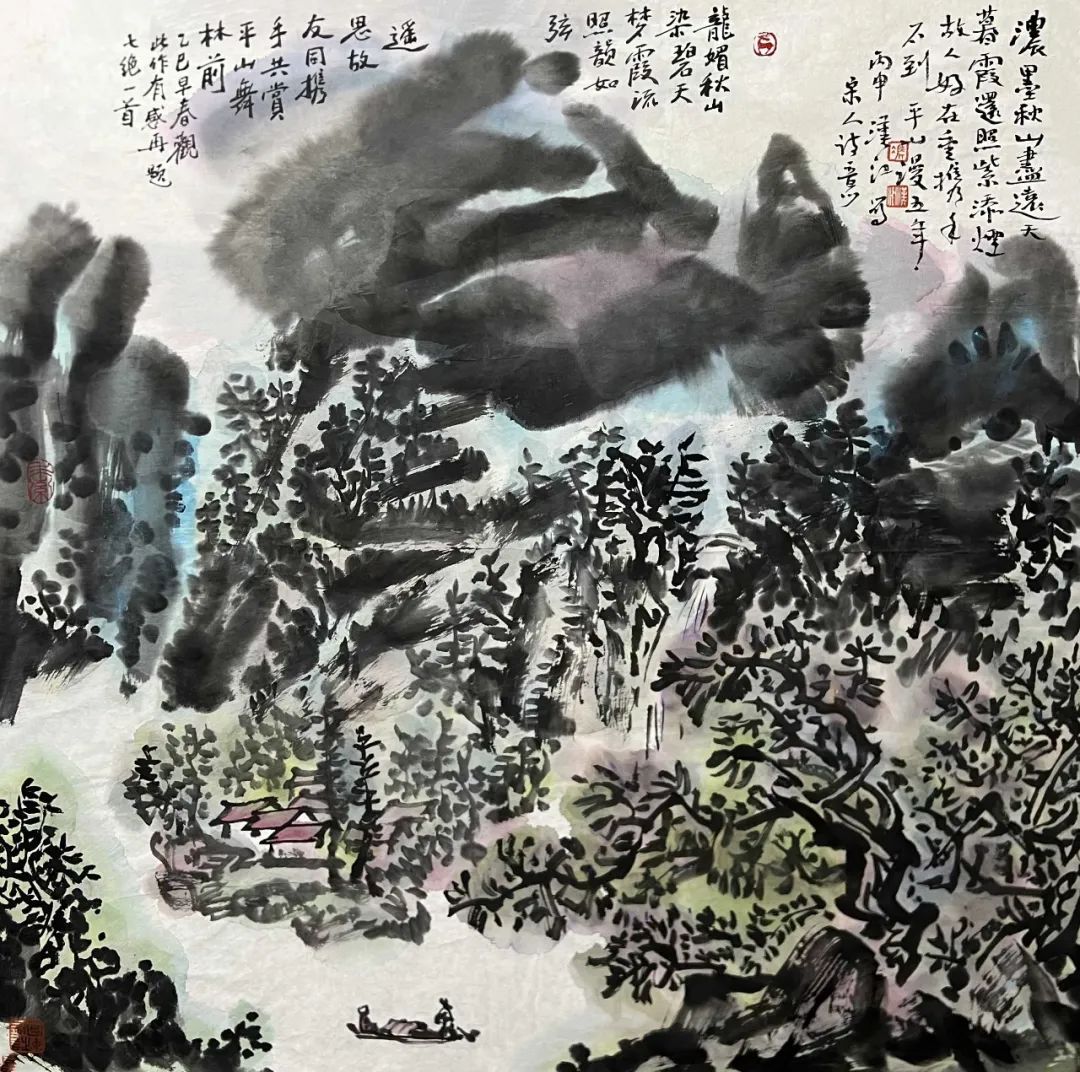 濃墨秋山盡遠天
暮霞還照紫添煙
故人好在重攜手
不到平山漫五年
丙申 漢江寫
宋人詩意
龍媚秋山
染碧天
梦霞流
照韻如
弦
遥
思故
友同携
手共賞
平山舞
林前
乙巳早春觀
此作有感再題
七绝一首